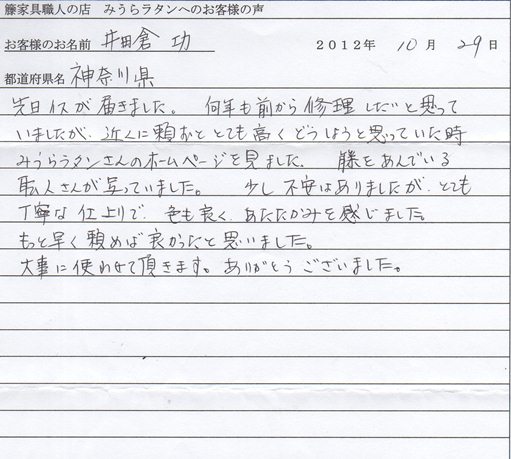 籐家具職人の店　みうらラタンへのお客様の声
お客様のお名前 井田倉 功 2012年 10月 29日
都道府県名 神奈川県
先日イスが届きました。何年も前から修理したいと思って
いましたが、近くに頼むととても高くどうしようと思っていた時
みうらラタンさんのホームページを見ました。籐をあんでいる
職人さんが写っていました。少し不安はありましたが、とても
丁寧な仕上りで、色も良く、あたたかみを感じました。
もっと早く頼めば良かったと思いました。
大事に使わせて頂きます。ありがとうございました。